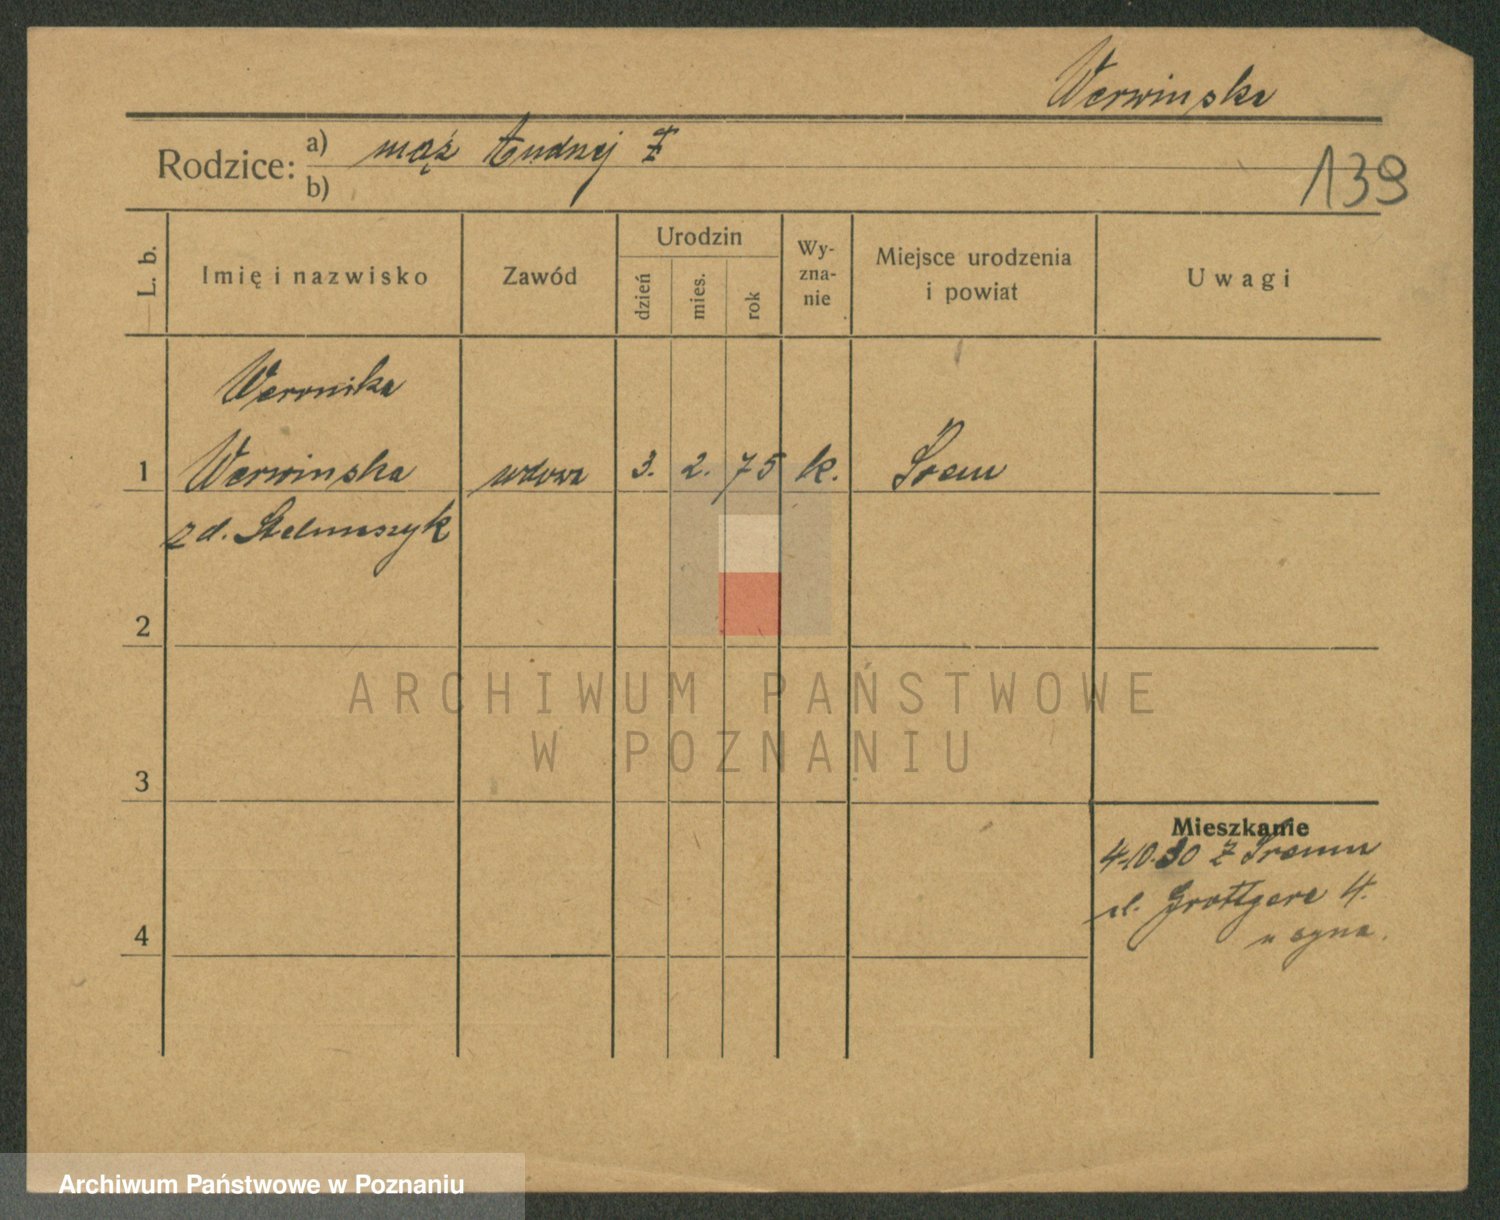 Werwinska
Rodzice: a) mąż Andrzej ‡
b)
139
L. b.
Imię i nazwisko
Zawód
Urodzin
dzień
mies.
rok
Wy-
zna-
nie
Miejsce urodzenia
i powiat
Uwagi
Weronika
1 Werwinska wdowa 3. 2. 75 k. Śrem
z d. Stelmaszyk
2
3
4
Mieszkanie
4.10.30 z Śremu
ul. Grottgera 4.
u syna.
ARCHIWUM PAŃSTWOWE
W POZNANIU
Archiwum Państwowe w Poznaniu